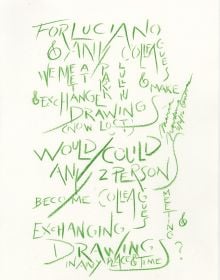 FOR LUCIANO
& ANY COLLEAGUES
WE MEET AT
& MAKE
& EXCHANGE
DRAWINGS
(NOW LOST)
WOULD / COULD
ANY 2 PERSON
BECOME COLLEAGUES
MEETING &
EXCHANGING
DRAWINGS
IN ANY PLACE & TIME ?